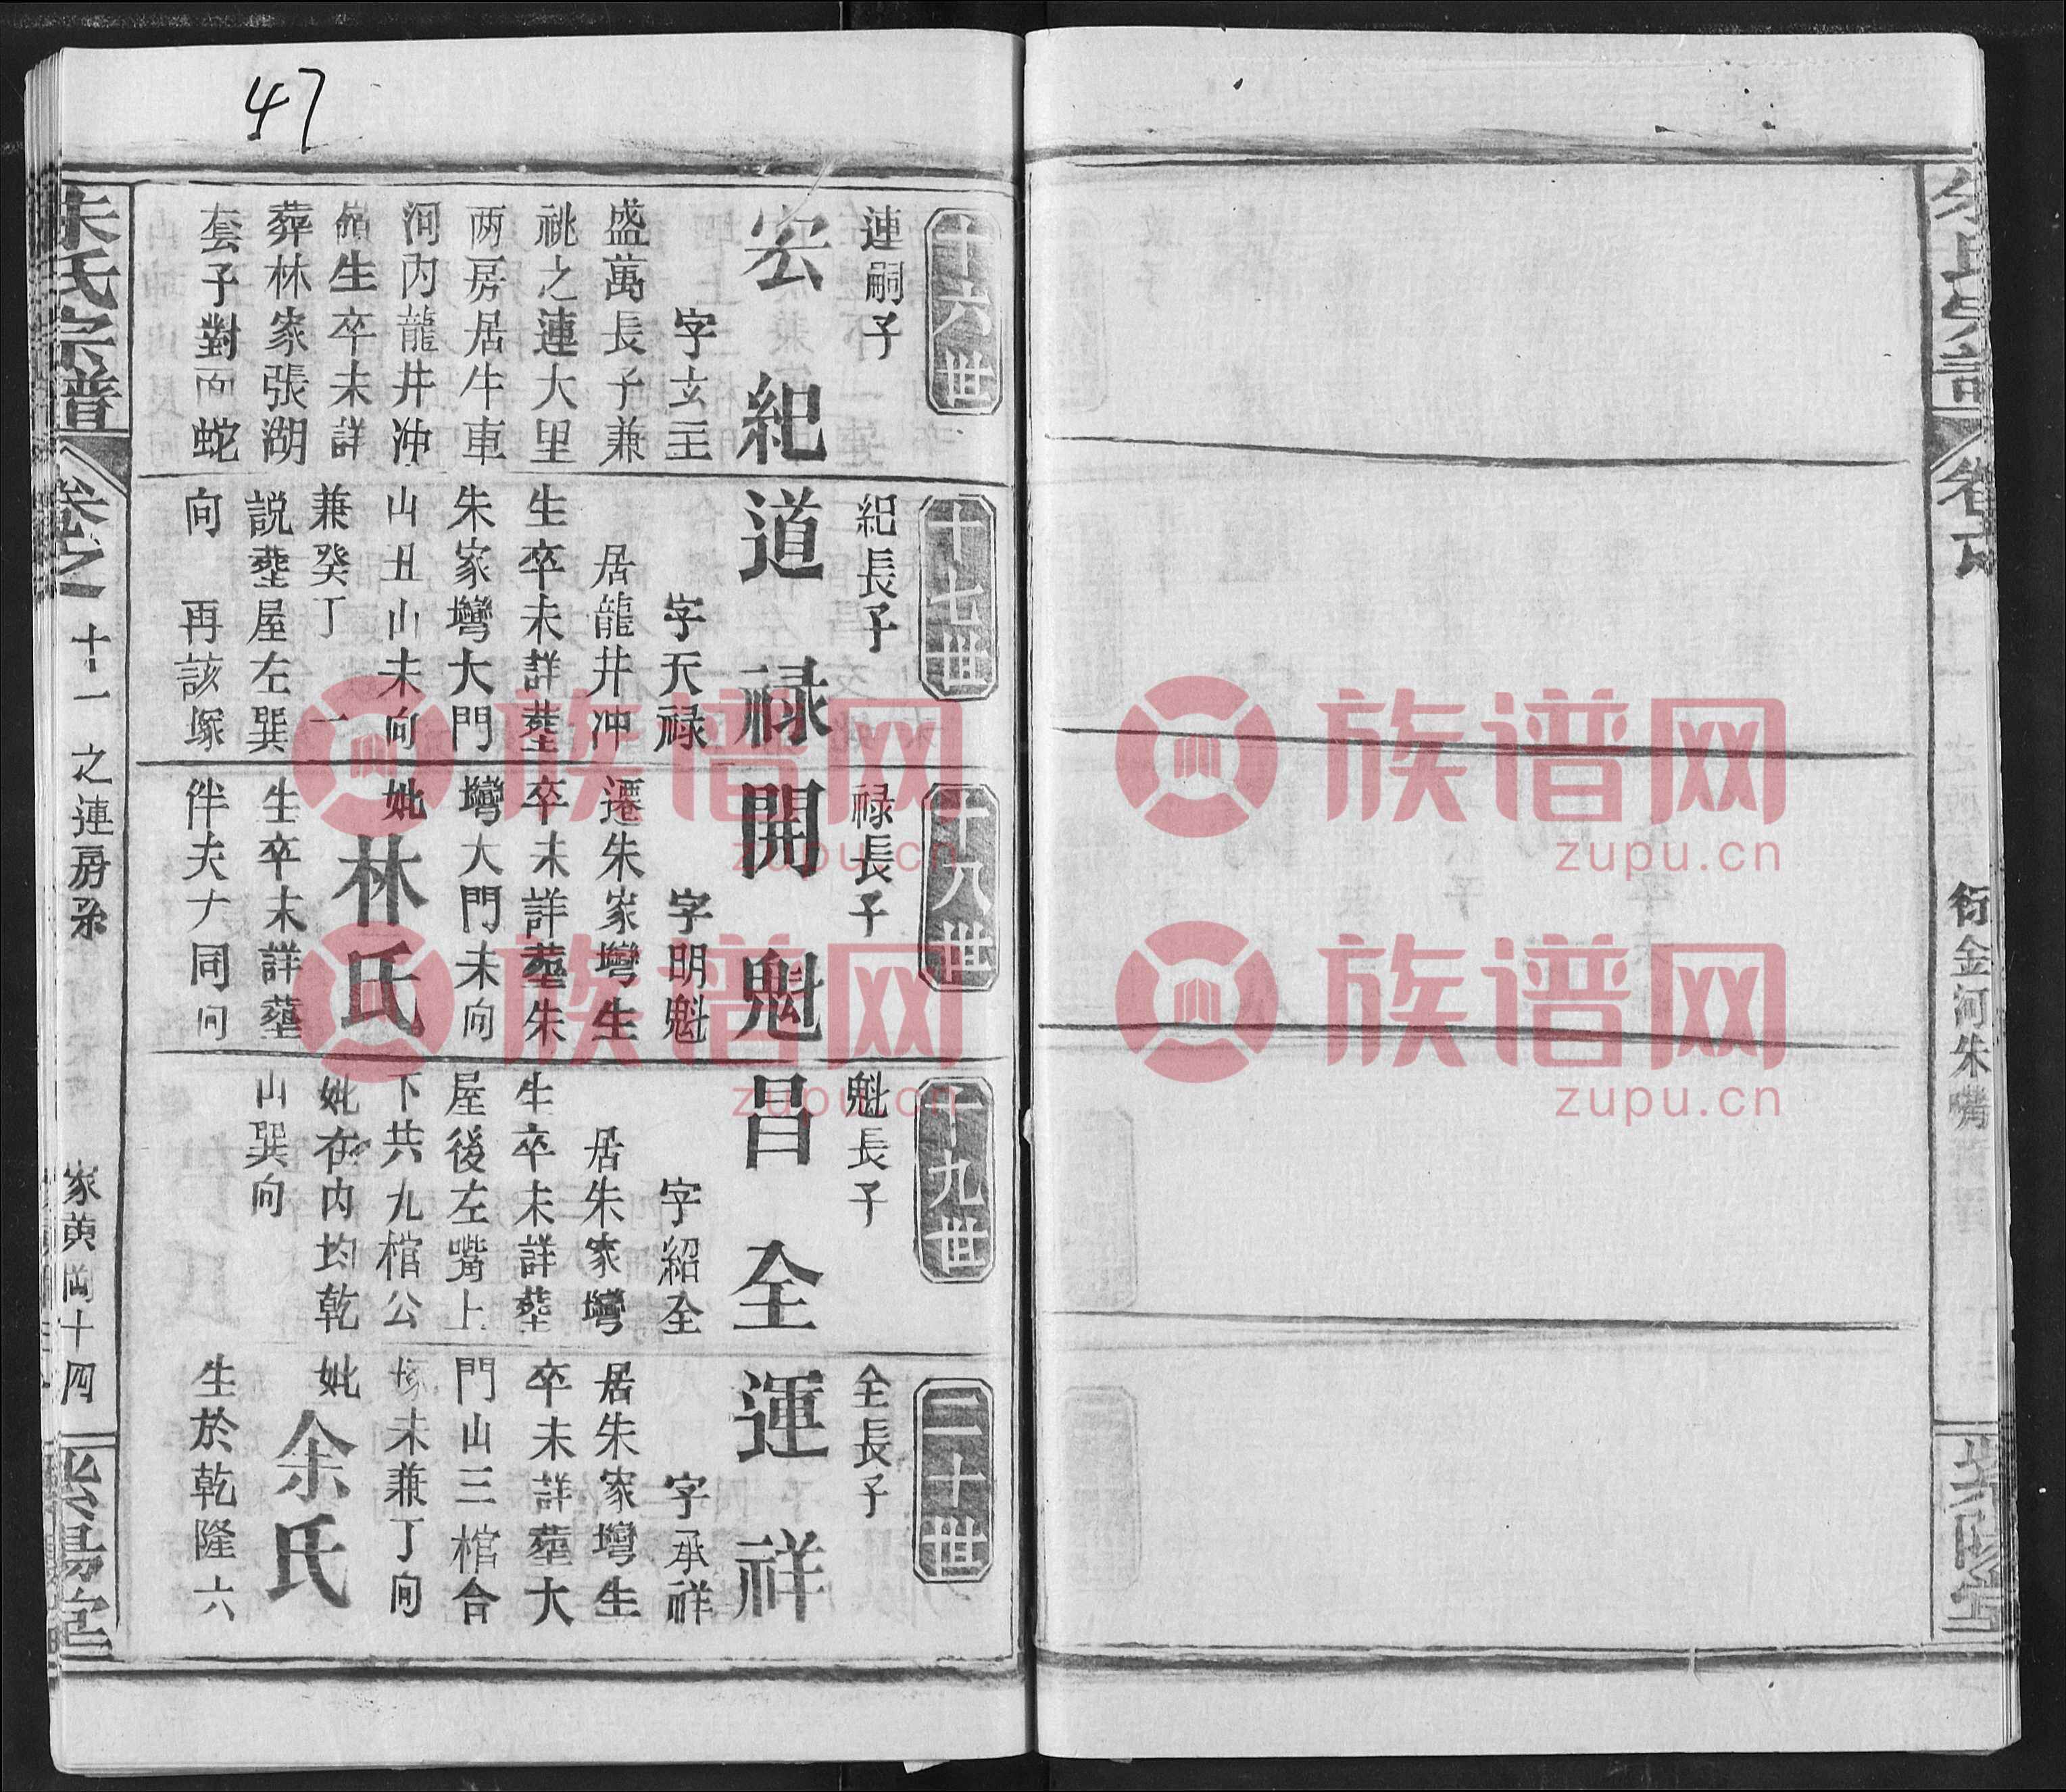 47
衍金河朱嘴
十六世
連嗣子
宏紀
字玄主
盛萬長子兼
祧之連大里
两房居牛車
河内龍井冲
生卒未詳
葬林家張湖
套子對面蛇
十七世
紀長子
道禄
字天禄
居龍井冲
生卒未詳塟
朱家壪大門
山丑山未向
兼癸丁 一
説塟屋左巽
向 再該塚
十八世
禄長子
開魁
字明魁
遷朱家壪生
卒未詳塟朱
壪大門未向
妣林氏
生卒未詳塟
伴夫大同向
十九世
魁長子
昌全
字紹全
居朱家壪
生卒未詳塟
屋後左嘴上
下共九棺公
妣在内均乾
山巽向
二十世
全長子
運祥
字承祥
居朱家壪生
卒未詳塟大
門山三棺合
塚未兼丁向
妣余氏
生於乾隆六
朱氏宗譜
卷之
十一
之連房
家黄岡十四
族谱网
zupu.cn
族谱网
zupu.cn
族谱网
zupu.cn
族谱网
zupu.cn